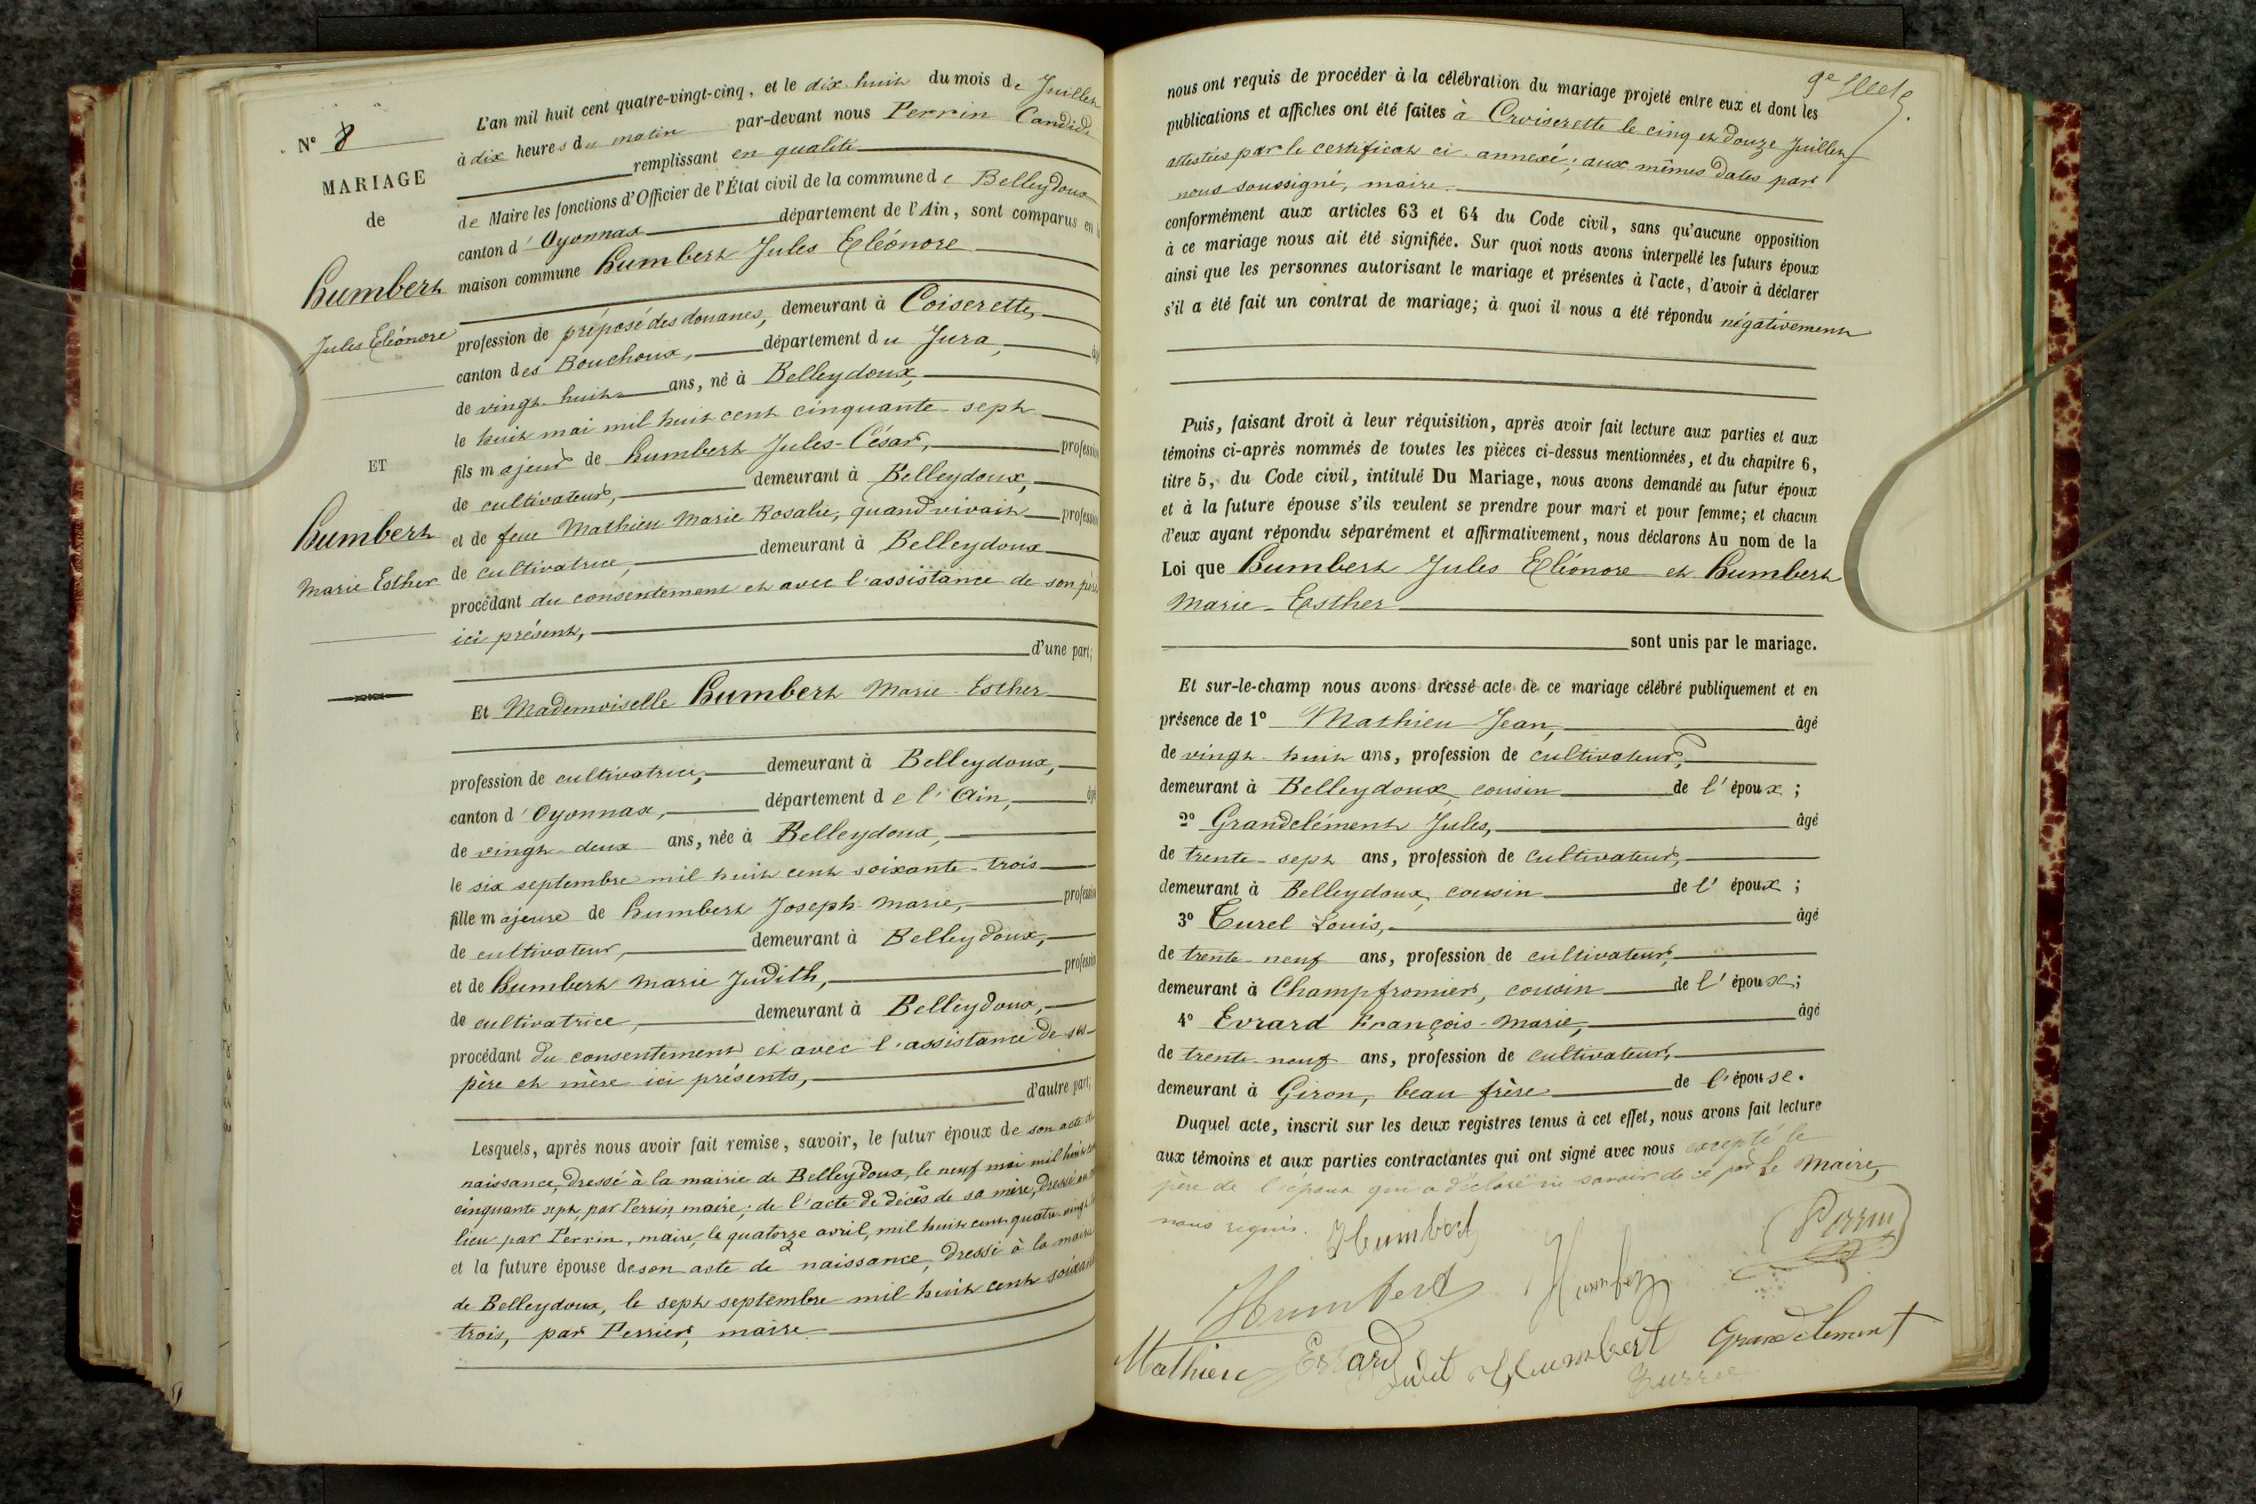 N° 8
MARIAGE
de
humbert
Jules Eléonore
ET
humbert
Marie Esther
L'an mil huit cent quatre-vingt-cinq, et le dix-huit du mois de Juillet
à dix heures du matin par-devant nous Perrin Candide
remplissant en qualité
de Maire les fonctions d'Officier de l'État civil de la commune de Belleydoux
canton d'Oyonnax département de l'Ain, sont comparus en la
maison commune humbert Jules Eléonore
profession de préposé des douanes, demeurant à Coiserette,
canton des Bouchoux, département du Jura, âgé
de vingt-huit ans, né à Belleydoux,
le huit mai mil huit cent cinquante-sept
fils majeur de humbert Jules-César, profession
de cultivateur, demeurant à Belleydoux,
et de feue Mathieu Marie Rosalie, quand vivait profession
de cultivatrice, demeurant à Belleydoux
procédant du consentement et avec l'assistance de son père
ici présent,
d'une part;
Et Mademoiselle humbert Marie-Esther
profession de cultivatrice, demeurant à Belleydoux,
canton d'Oyonnax, département de l'Ain, âgé
de vingt-deux ans, née à Belleydoux,
le six septembre mil huit cent soixante-trois
fille majeure de humbert Joseph-Marie, profession
de cultivateur, demeurant à Belleydoux,
et de humbert Marie Judith, profession
de cultivatrice, demeurant à Belleydoux,
procédant du consentement et avec l'assistance de ses
père et mère ici présents,
d'autre part;
Lesquels, après nous avoir fait remise, savoir, le futur époux de son acte de
naissance, dressé à la mairie de Belleydoux, le neuf mai mil huit cent
cinquante sept, par Perrin, maire; de l'acte de décès de sa mère, dressé au
lieu par Perrin, maire, le quatorze avril, mil huit cent quatre-vingt
et la future épouse de son acte de naissance, dressé à la mairie
de Belleydoux, le sept septembre mil huit cent soixante
trois, par Perrier, maire
9e
nous ont requis de procéder à la célébration du mariage projeté entre eux et dont les
publications et affiches ont été faites à Croiserette le cinq et douze Juillet,
attestées par le certificat ci-annexé; aux mêmes dates par
nous soussigné, maire.
conformément aux articles 63 et 64 du Code civil, sans qu'aucune opposition
à ce mariage nous ait été signifiée. Sur quoi nous avons interpellé les futurs époux
ainsi que les personnes autorisant le mariage et présentes à l'acte, d'avoir à déclarer
s'il a été fait un contrat de mariage; à quoi il nous a été répondu négativement
Puis, faisant droit à leur réquisition, après avoir fait lecture aux parties et aux
témoins ci-après nommés de toutes les pièces ci-dessus mentionnées, et du chapitre 6,
titre 5, du Code civil, intitulé Du Mariage, nous avons demandé au futur époux
et à la future épouse s'ils veulent se prendre pour mari et pour femme; et chacun
d'eux ayant répondu séparément et affirmativement, nous déclarons Au nom de la
Loi que humbert Jules Eléonore et humbert
Marie-Esther
sont unis par le mariage.
Et sur-le-champ nous avons dressé acte de ce mariage célébré publiquement et en
présence de 1° Mathieu Jean, âgé
de vingt-huit ans, profession de cultivateur,
demeurant à Belleydoux, cousin de l'époux;
2° Grandclément Jules, âgé
de trente-sept ans, profession de cultivateur,
demeurant à Belleydoux, cousin de l'époux;
3° Turel Louis, âgé
de trente-neuf ans, profession de cultivateur,
demeurant à Champfromier, cousin de l'époux;
4° Evrard François-Marie, âgé
de trente-neuf ans, profession de cultivateur,
demeurant à Giron, beau frère de l'épouse.
Duquel acte, inscrit sur les deux registres tenus à cet effet, nous avons fait lecture
aux témoins et aux parties contractantes qui ont signé avec nous excepté le
père de l'époux qui a déclaré ne savoir de ce par Le Maire,
nous requis. Humbert Perrin
Humbert
Mathieu Evrard Humbert Grandclement